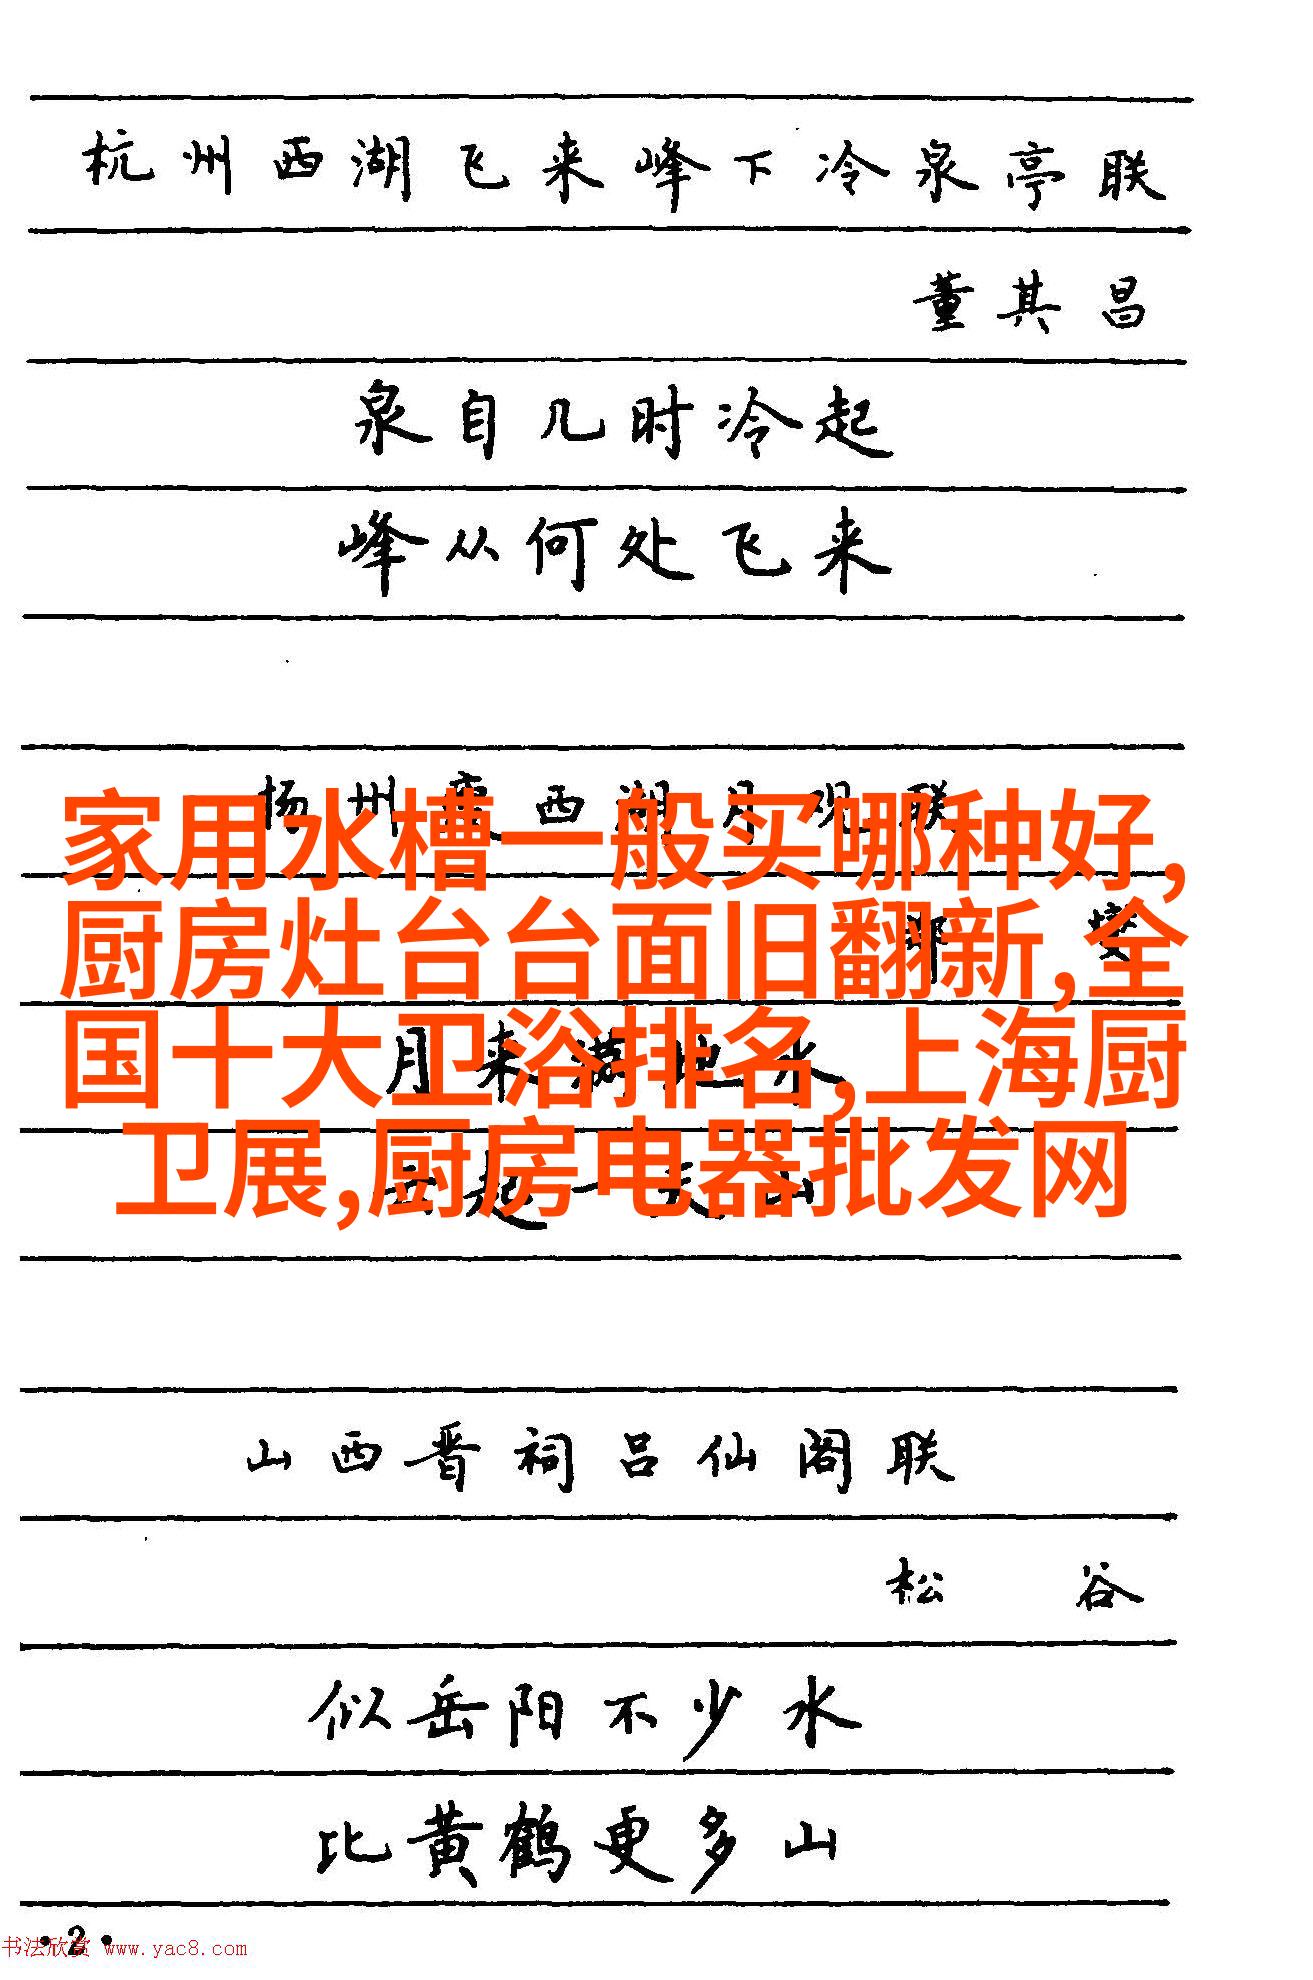 杭州西湖飞来峰下冷泉亭联
董其昌
泉自几时冷起
峰从何处飞来
扬州瘦西湖月观联
家用水槽一般买哪种好,
厨房灶台台面旧翻新,全
国十大卫浴排名,上海厨
卫展,厨房电器批发网
月来满地水
云起一天山
山西晋祠吕仙阁联
松谷
似岳阳不少水
比黄鹤更多山
·2·
书法欣赏 www.yac8.com